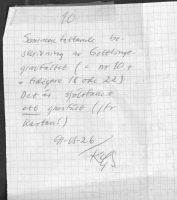 10
Sammanfattande be-
skrivning av Gettlinge-
gravfältet ( = nr 10 +
+ tidigare 18 och 22)
Det är
ett gravfält (jfr
kartan!)